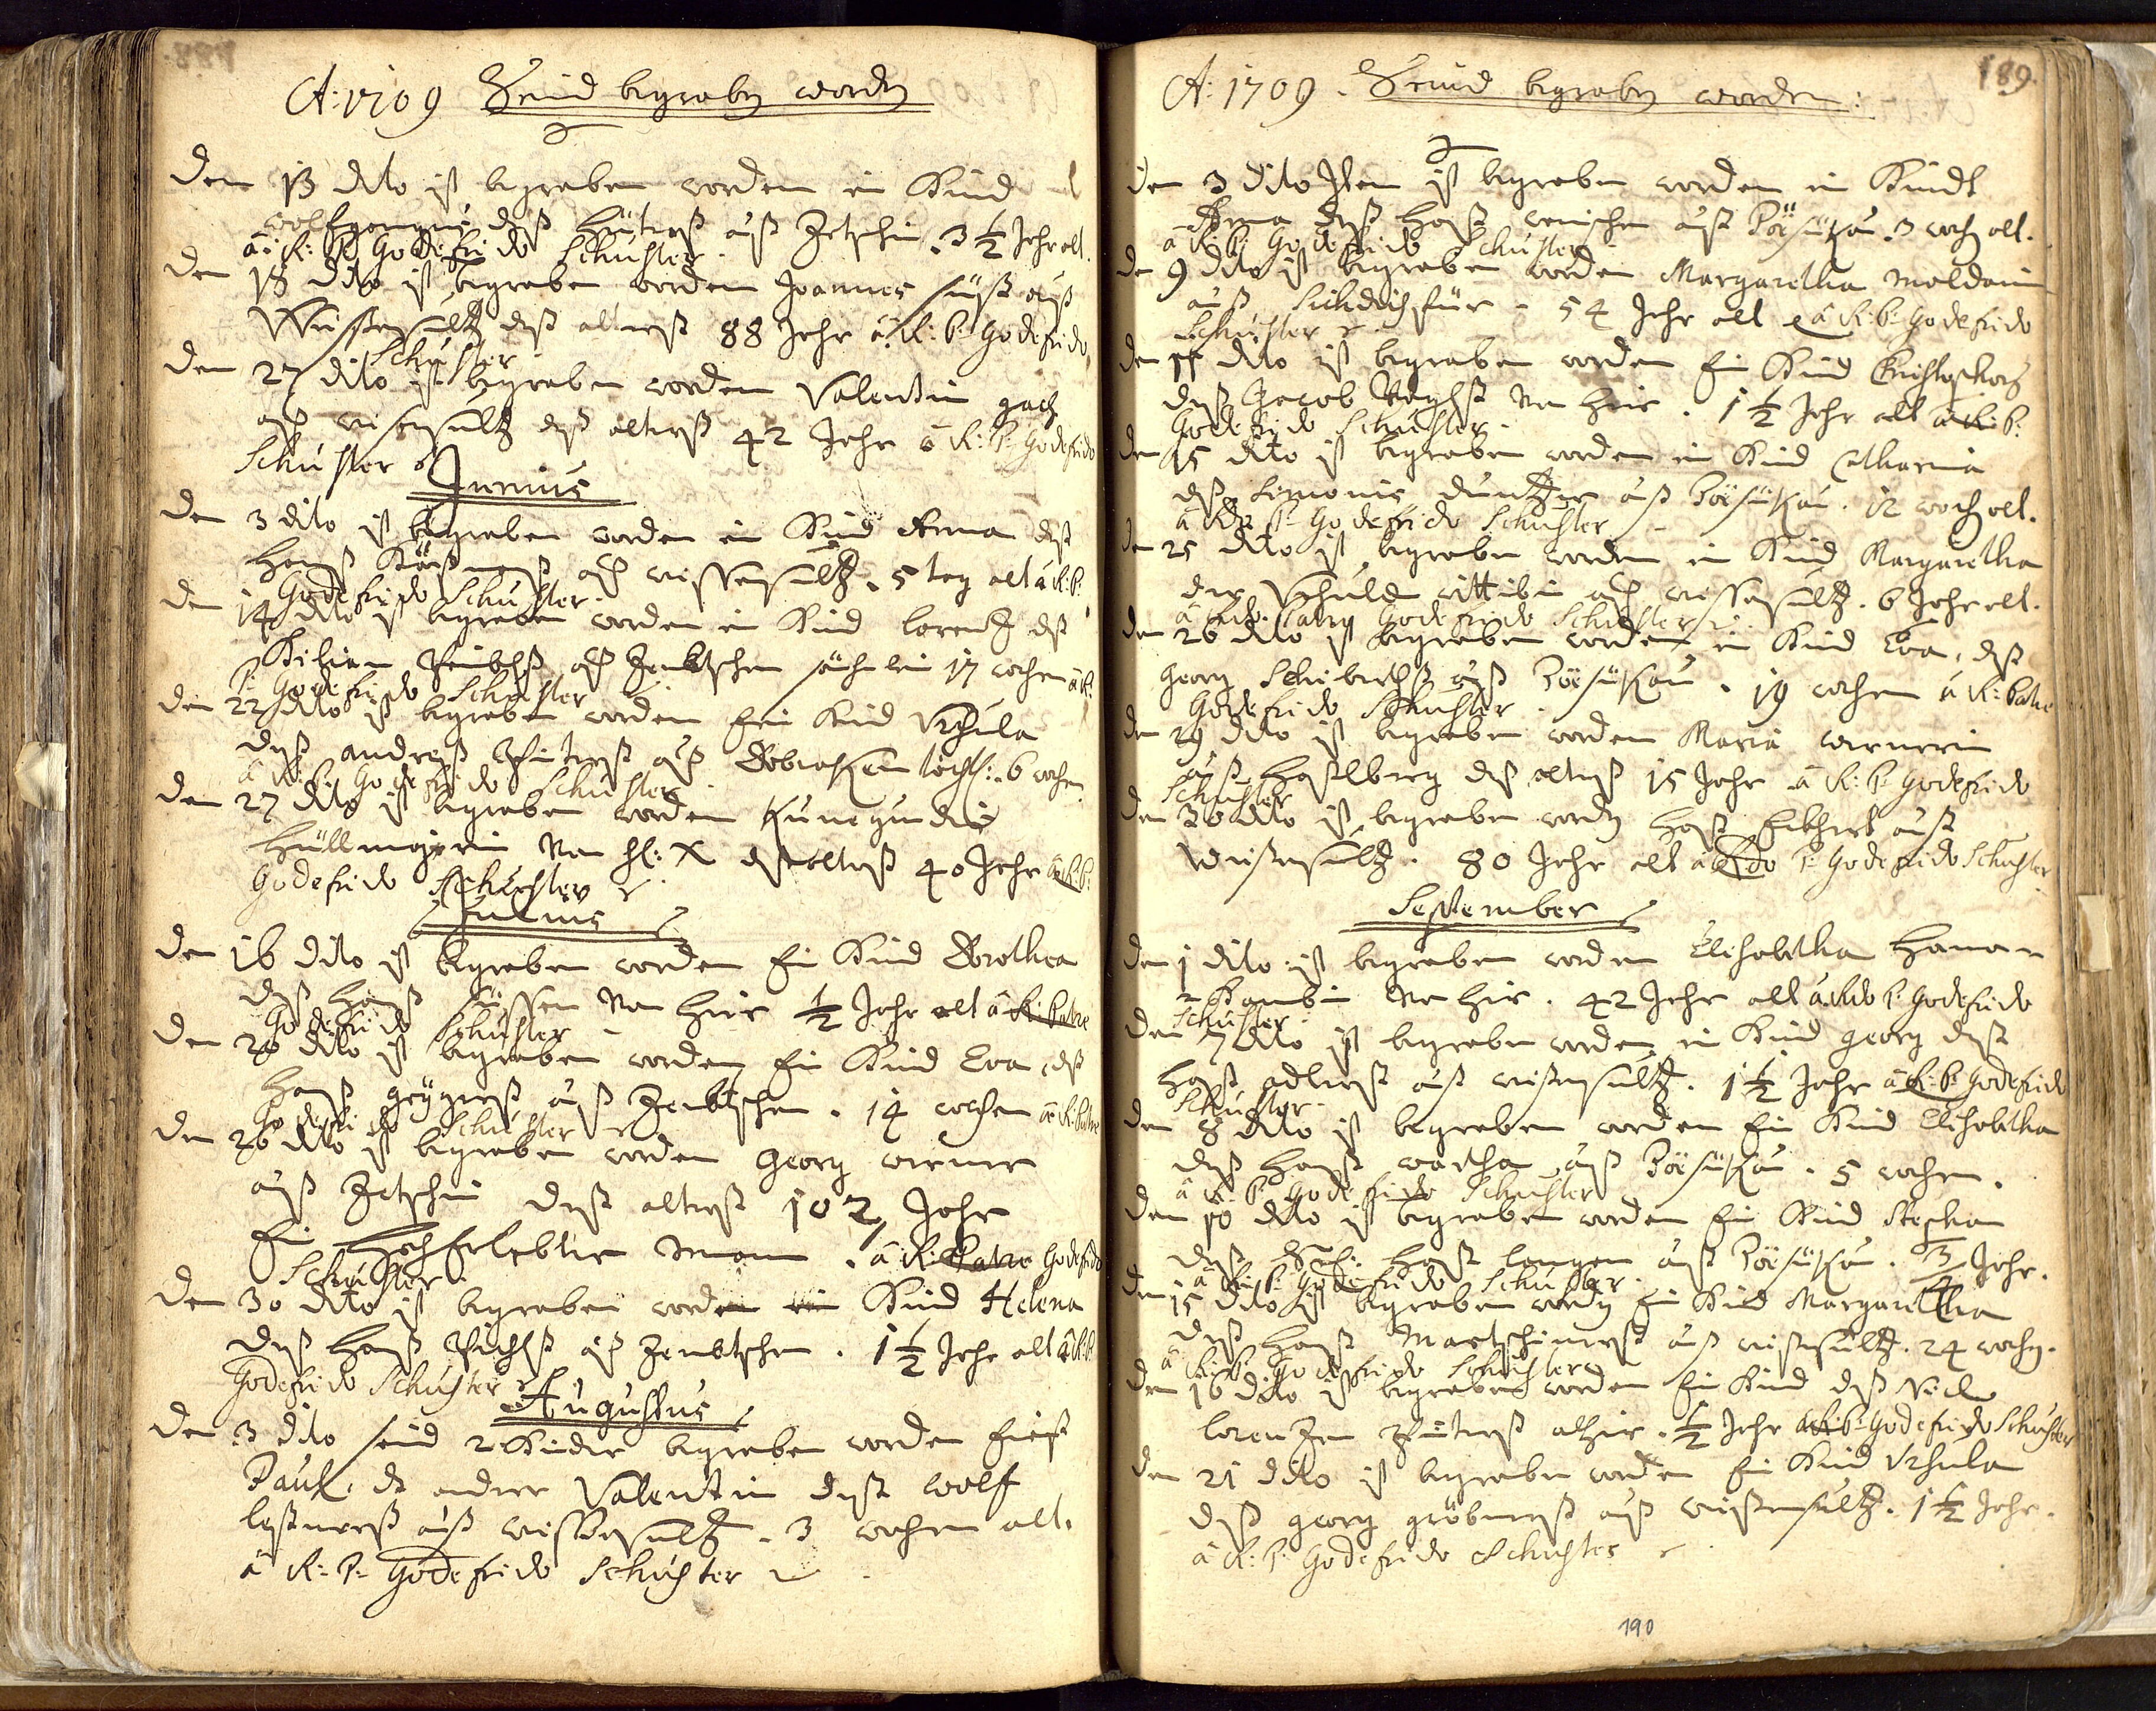 A: 1709 Seind begraben worden
Den 13 dito ist begraben worden ein Kind
Wolfgangus deß Hütterß auß Zetschin . 3 1/2 Jahr alt.
â: R: P: Godefrido Schuster
Den 18 dito ist begraben worden Joannes süß auß
Weissensultz deß altterß 88 Jahr â: R: P: Godefrido
Schuster
Den 27 dito ist begraben worden Valentin
auß weissensultz deß altterß 42 Jahr â R: P: Godefrido
Schuster
Junius
Den 3 dito ist begraben worden ein Kind Anna deß
Hanß auß weissensultz . 5 tag alt â R: P:
Godefrido Schuster
Den 14 dito ist begraben worden ein Kind Lorentz deß
Kilian auß söhnlein 17 wochen â R:
P: Godefrido Schuster
Den 22 dito ist begraben worden Ein Kind Vrsula
deß andreß auß töchtl: 6 wochen
â R: P: Godefrido Schuster
Den 27 dito ist begraben worden Kunegundis
Hüllmajerin von hl: X deß altterß 40 Jahr â R: P:
Godefrido Schuster
Julius
Den 16 dito ist begraben worden Ein Kind Dorothea
deß Hanß süssen von hier 1/2 Jahr alt â R: Patre
Godefrido Schuster
Den 20 dito ist begraben worden Ein Kind Eva, deß
Hanß auß . 14 wochen â R: Patre
Godefrido Schuster
Den 26 dito ist begraben worden Georg werner
auß Zetschin deß altterß 102 Jahr
Ein Hocherlebter Mann . â R: Patre Godefrido
Schuster
Den 30 dito ist begraben worden ein Kind Helena
deß Hanß auß . 1 1/2 Jahr alt â R: P:
Godefrido Schuster
Augustus
Den 3 dito seind 2 Kinder begraben worden Einß
Paul, dz ander Valentin deß wolf
auß weissensultz . 3 wochen alt.
â R: P: Godefrido Schuster
189.
A: 1709 . Seind begraben worden:
Den 3 dito Item ist begraben worden ein Kindt
Anna deß Hanß auß . 3 woch alt.
â R: P: Godefrido Schuster
Den 9 dito ist begraben worden Margaretha Moldanin
auß . 54 Jahr alt â R: P: Godefrido
Schuster
Den 11 dito ist begraben worden Ein Kind
deß Jacob von hier . 1 1/2 Jahr alt â R: P:
Godefrido Schuster
Den 15 dito ist begraben worden ein Kind Catharina
deß Simonis auß . 12 woch alt.
â P: Godefrido Schuster
Den 25 dito ist begraben worden ein Kind Margaretha
der Vrsula auß weissensultz . 6 Jahr alt.
â Patre Godefrido Schuster
Den 26 dito ist begraben worden ein Kind Eva, deß
Georg auß . 19 wochen â R: Patre
Godefrido Schuster
Den 29 dito ist begraben worden Maria wernerin
auß Haselberg deß altterß 15 Jahr â R: P: Godefrido
Schuster
Den 30 dito ist begraben worden Hanß auß
Weissensultz . 80 Jahr alt â P: Godefrido Schuster
September
Den 1 dito ist begraben worden Elisabetha
von hier . 42 Jahr alt â P: Godefrido
Schuster
Den 7 dito ist begraben worden ein Kind Georg deß
Hanß adlerß auß weissensultz . 1 1/2 Jahr â R: P: Godefrido
Schuster
Den 8 dito ist begraben worden Ein Kind Elisabetha
deß Hanß auß . 5 wochen .
â R: P: Godefrido Schuster
Den 10 dito ist begraben worden Ein Kind Stephan
deß Hanß langen auß . 3/4 Jahr.
â R: P: Godefrido Schuster
Den 15 dito ist begraben worden Ein Kind Margaretha
deß Hanß auß weissensultz . 24 wochen.
â R: P: Godefrido Schuster
Den 16 dito ist begraben worden Ein Kind deß
Lorentzen alhier . 1/2 Jahr â R: P: Godefrido Schuster
Den 21 dito ist begraben worden Ein Kind Vrsula
deß Georg gröbnerß auß weissensultz . 1 1/2 Jahr.
â R: P: Godefrido Schuster
190